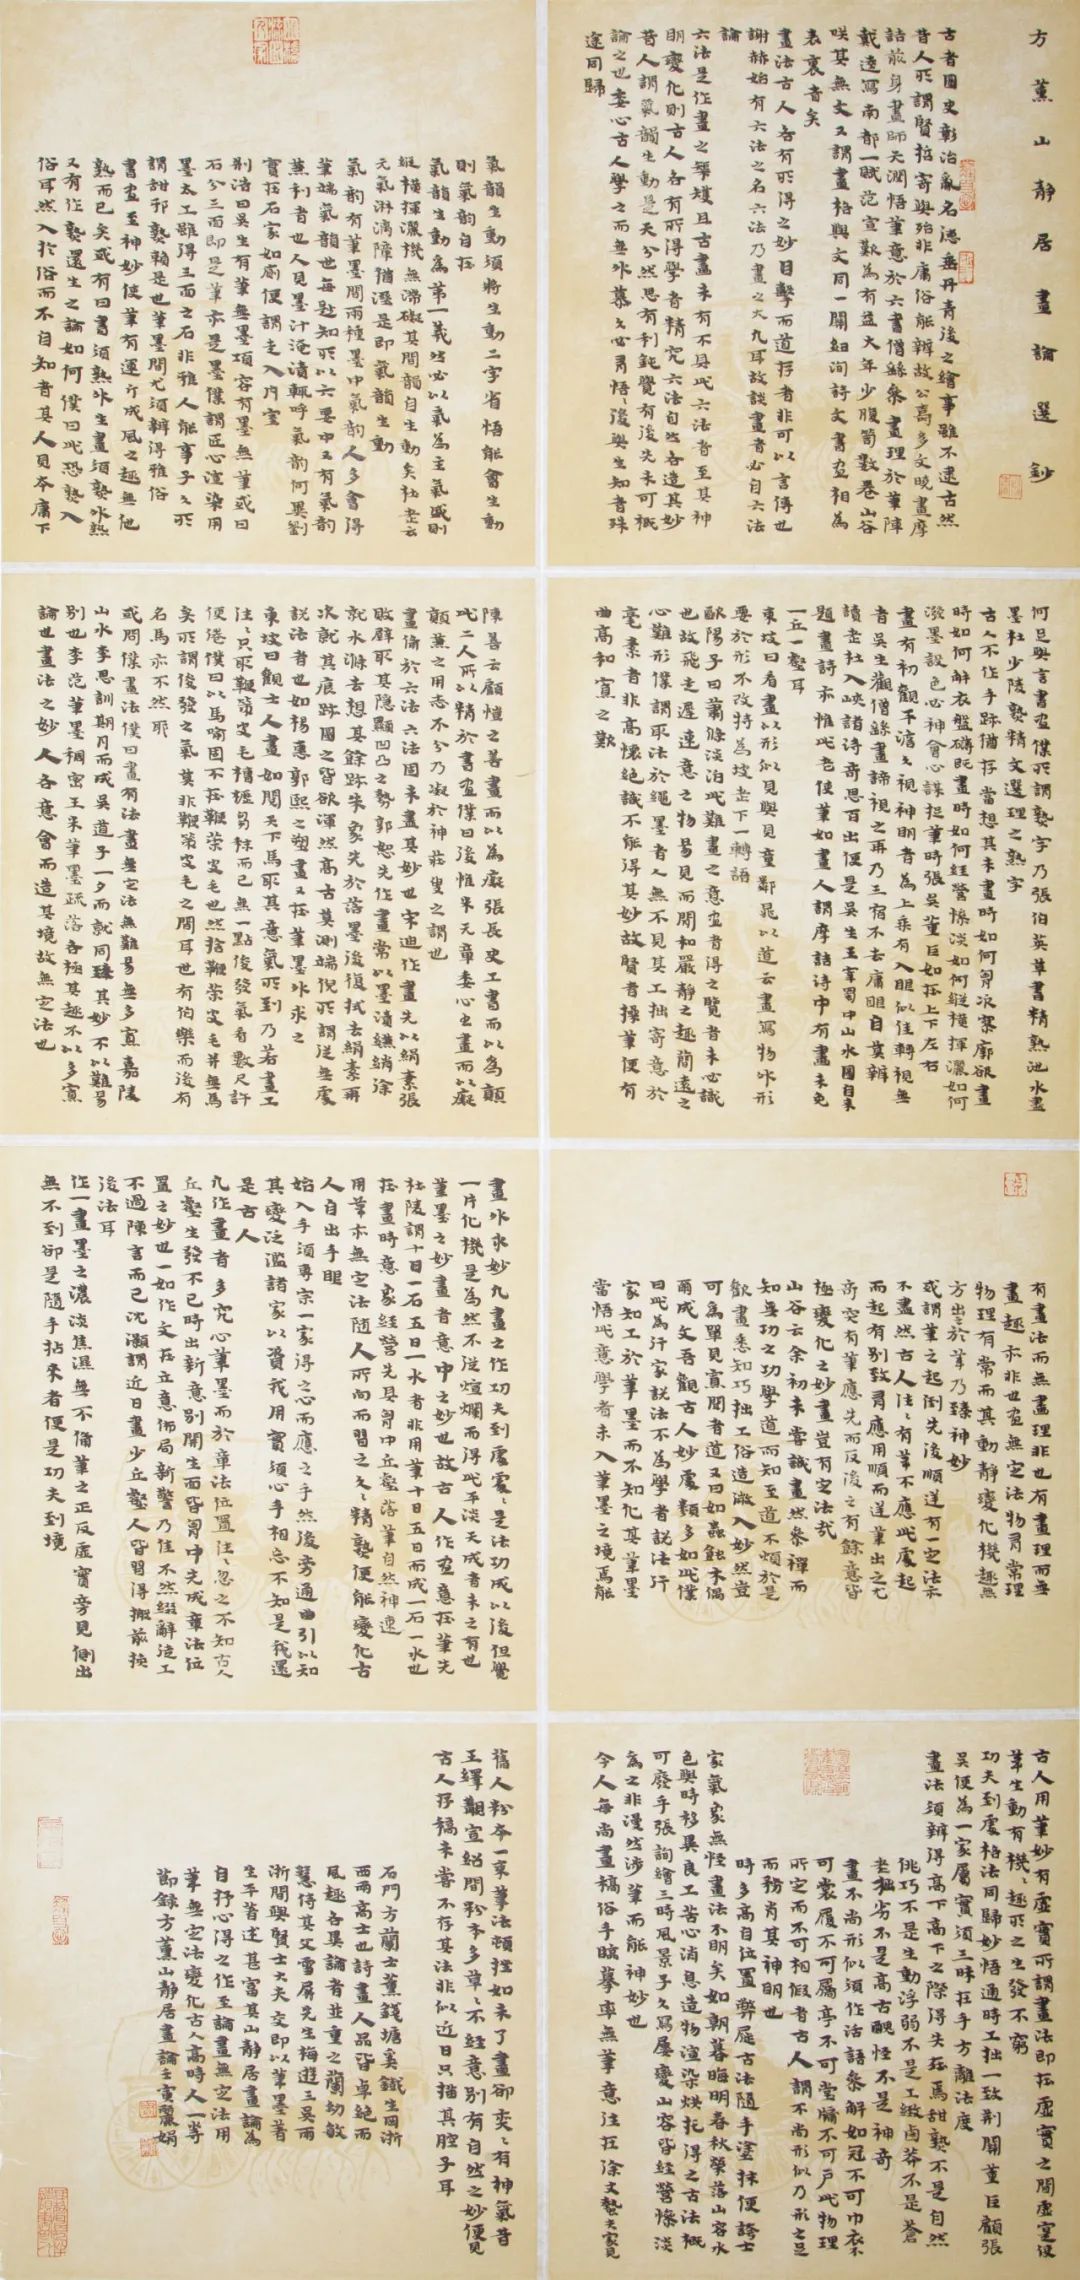 方薰山靜居畫論選鈔
古者圖史彰治亂名德垂丹青後之繪事雖不逮古然
昔人所謂賢哲寄興殆非庸俗能辨故公壽多文曉畫摩
詰前身畫師天潤悟筆意於六書僧繇參畫理於筆陣
戴逵寫南都一賦范宣歎為有益大年少腹笥數卷山谷
咲其無文又謂畫格與文同一關紐洵詩文書畫相為
表裏者矣
畫法古人各有所得之妙目擊而道存者非可以言傳也
謝赫始有六法之名六法乃畫之大凡耳故談畫者必自六法
論
六法是作畫之榘矱且古畫未有不具此六法者至其神
明變化則古人各有所得學者精究六法自然各造其妙
昔人謂氣韻生動是天分然思有利鈍覺有後先未可概
論之也委心古人學之而無外慕久必有悟悟後與生知者殊
途同歸
氣韻生動須將生動二字省悟能會生動
則氣韵自在
氣韻生動為第一義然必以氣為主氣盛則
縱橫揮灑機無滯礙其間韻自生動矣杜老云
元氣淋漓障猶溼是即氣韻生動
氣韵有筆墨間兩種墨中氣韵人多會得
筆端氣韻世每尠知所以六要中又有氣韵
兼力者也人見墨汁淹漬輒呼氣韵何異劉
寔在石家如廁便謂走入內室
荆浩曰吳生有筆無墨項容有墨無筆或曰
石分三面即是筆亦是墨僕謂匠心渲染用
墨太工雖得三面之石非雅人能事子久所
謂甜邪熟賴是也筆墨間尤須辨得雅俗
書畫至神妙使筆有運斤成風之趣無他
熟而已矣或有曰書須熟外生畫須熟外熟
又有作熟還生之論如何僕曰此恐熟入
俗耳然入於俗而不自知者其人見本庸下
何足與言書畫僕所謂熟字乃張伯英草書精熟池水盡
墨杜少陵熟精文選理之熟字
古人不作手跡猶存當想其未畫時如何胸次寥廓欲畫
時如何解衣盤礴既畫時如何經營慘淡如何縱橫揮灑如何
潑墨設色必神會心謀捉筆時張吳董巨如在上下左右
畫有初觀平澹久視神明者為上乘有入眼似佳轉視無
者吳生觀僧繇畫諦視之再乃三宿不去庸眼自莫辨
讀老杜入峽諸詩奇思百出便是吳生王宰蜀中山水圖自來
題畫詩亦惟此老使筆如畫人謂摩詰詩中有畫未免
一丘一壑耳
東坡曰看畫以形似見與兒童鄰晁以道云畫寫物外形
要於形不改特為坡老下一轉語
歐陽子曰蕭條淡泊此難畫之意畫者得之覽者未必識
也故飛走遲速意之物易見而閒和嚴靜之趣簡遠之
心難形僕謂取法於繩墨者人無不見其工拙寄意於
毫素者非高懷絕識不能得其妙故賢者操筆便有
曲高和寡之歎
陳善云顧愷之善畫而以為癡張長史工書而以為顛
此二人所以精於書畫僕曰後惟米元章委心書畫而以癡
顛兼之用志不分乃凝於神莊叟之謂也
畫備於六法六法固未盡其妙也宋迪作畫先以絹素張
敗壁取其隱顯凹凸之勢郭恕先作畫常以墨漬縑綃徐
就水滌去想其餘跡朱象先於落墨後復拭去絹素再
次就其痕跡圖之皆欲渾然高古莫測端倪所謂從無處
説法者也如楊惠郭熙之塑畫又在筆墨外求之
東坡曰觀士人畫如閱天下馬取其意氣所到乃若畫工
往往只取鞭策皮毛槽櫪芻秣而已無一點後發氣看數尺許
便倦僕曰以馬喻固不在鞭策皮毛也然捨鞭策皮毛并無馬
矣所謂俊發之氣莫非鞭策皮毛之間耳也有伯樂而後有
名馬亦不然耶
或問僕畫法僕曰畫有法畫無定法無難易無多寡嘉陵
山水李思訓期月而成吳道子一夕而就同臻其妙不以難易
別也李范筆墨稠密王米筆墨疏落各極其趣不以多寡
論也畫法之妙人各意會而造其境故無定法也
有畫法而無畫理非也有畫理而無
畫趣亦非也畫無定法物有常理
物理有常而其動靜變化機趣無
方出之於筆乃臻神妙
或謂筆之起倒先後順逆有一定法亦
不盡然古人往往有筆不應此處起
而起有別致有應用順而逆筆出之尤
奇突有筆應先而反後之有餘意皆
極變化之妙畫豈有定法哉
山谷云余初未嘗識畫然參禪而
知無功之功學道而知至道不煩於是
歡畫悉知巧拙工俗造微入妙然豈
可為單見寡聞者道又曰如蟲蝕木偶
爾成文吾觀古人妙處類多如此僕
曰此為行家説法不為學者説法行
家知工於筆墨而不知化其筆墨
當悟此意學者未入筆墨之境焉能
畫外求妙凡畫之作功夫到處處處是法功成以後但覺
一片化機是為然不從煊爛而得此平淡天成者未之有也
筆墨之妙畫者意中之妙也故古人作畫意在筆先
杜陵謂十日一石五日一水者非用筆十日五日而成一石一水也
在畫時意象經營先具胸中丘壑落筆自然神速
用筆亦無定法隨人所向而習之久久精熟便能變化古
人自出手眼
始入手須專宗一家得之心而應之手然後旁通曲引以知
其變泛濫諸家以資我用實須心手相忘不知是我還
是古人
凡作畫者多究心筆墨而於章法位置往往忽之不知古人
丘壑生發不已時出新意別開生面皆胸中先成章法位
置之妙也一如作文在立意佈局新警乃佳不然綴辭徒工
不過陳言而已沈灝謂近日畫少丘壑人皆習得搬前換
後法耳
作一畫墨之濃淡焦濕無不備筆之正反虛實旁見側出
無不到卻是隨手拈來者便是功夫到境
古人用筆妙有虛實所謂畫法即在虛實之間虛實使
筆生動有機機趣所之生發不窮
功夫到處格法同歸妙悟通時工拙一致荆關董巨顧張
吳便為一家屬實須三昧在手方離法度
畫法須辨得高下高下之際得失在焉甜熟不是自然
佻巧不是生動浮弱不是工緻鹵莽不是蒼
老拙劣不是高古醜怪不是神奇
畫不尚形似須作活語參解如冠不可巾衣不
可裳履不可屬亭不可堂牖不可戶此物理
所定而不可相假者古人謂不尚形似乃形之足
而務肖其神明也
時多高自位置弊屣古法隨手塗抹便誇士
家氣象無怪畫法不明矣如朝暮晦明春秋榮落山容水
色與時移異良工苦心消息造物渲染烘托得之古法概
可廢乎張詢繪三時風景子久寫屢變山容皆經營慘淡
為之非漫然涉筆而能神妙也
今人每尚畫稿俗手臨摹率無筆意往在徐丈蟄夫家見
舊人粉本一束筆法頓挫如未了畫卻奕奕有神氣昔
王繹覯宣紹間粉本多草草不經意別有自然之妙便見
古人存稿未嘗不存其法非似近日只描其腔子耳
石門方蘭士薰錢塘奚鐵生岡浙
西兩高士也詩畫人品皆卓絕而
風趣各異論者並重之蘭幼敏
慧侍其父雪屏先生梅遊三吳兩
浙間與賢士大夫交即以筆墨著
生平著述甚富其山靜居畫論為
自抒心得之作至論畫無定法用
筆無定法變化古人高時人一等
節錄方薰山靜居畫論壬寅麗娟